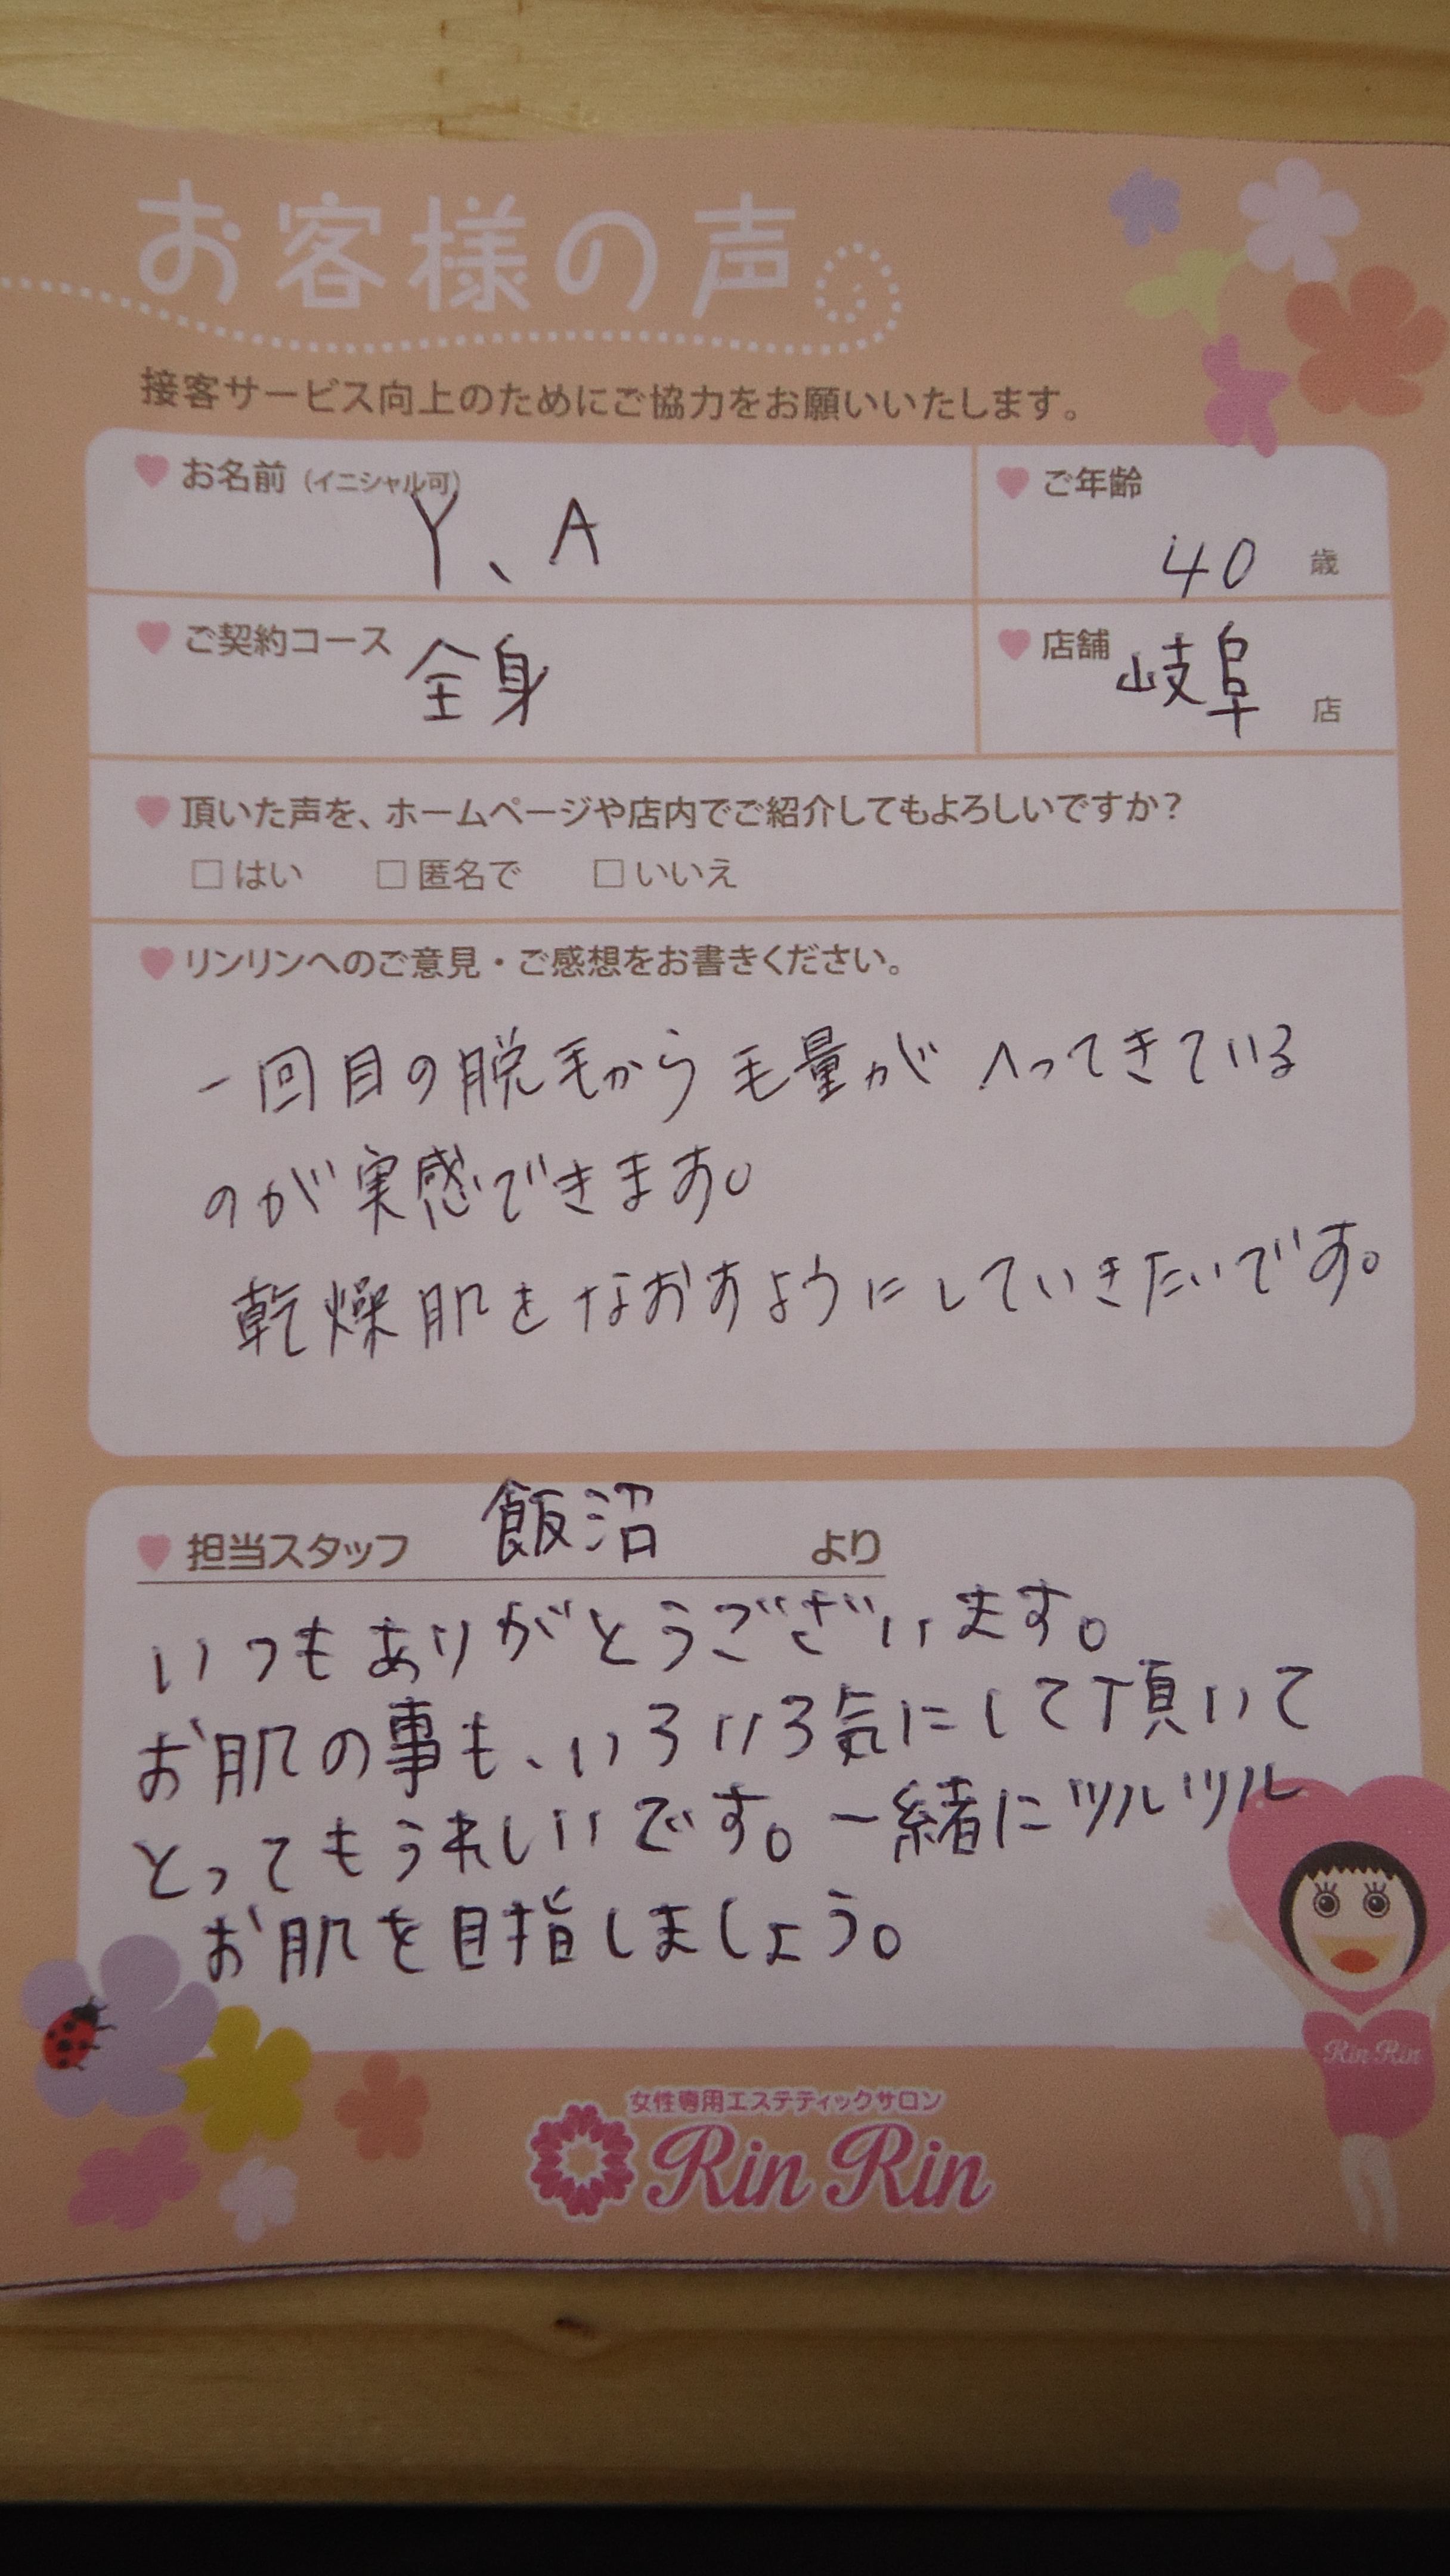 お客様の声
接客サービス向上のためにご協力をお願いいたします。
お名前（イニシャル可）
Y、A
ご年齢
40 歳
ご契約コース 全身
店舗 岐阜 店
頂いた声を、ホームページや店内でご紹介してもよろしいですか？
□はい □匿名で □いいえ
リンリンへのご意見・ご感想をお書きください。
一回目の脱毛から毛量がへってきている
のが実感できます。
乾燥肌をなおすようにしていきたいです。
担当スタッフ 飯沼 より
いつもありがとうございます。
お肌の事も、いろいろ気にして頂いて
とってもうれしいです。一緒にツルツル
お肌を目指しましょう。
Rin Rin
女性専用エステティックサロン
Rin Rin